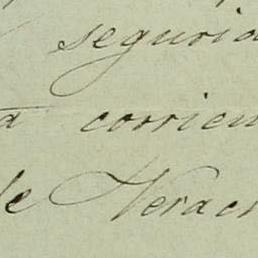 segurid
a corrien
de Veracr